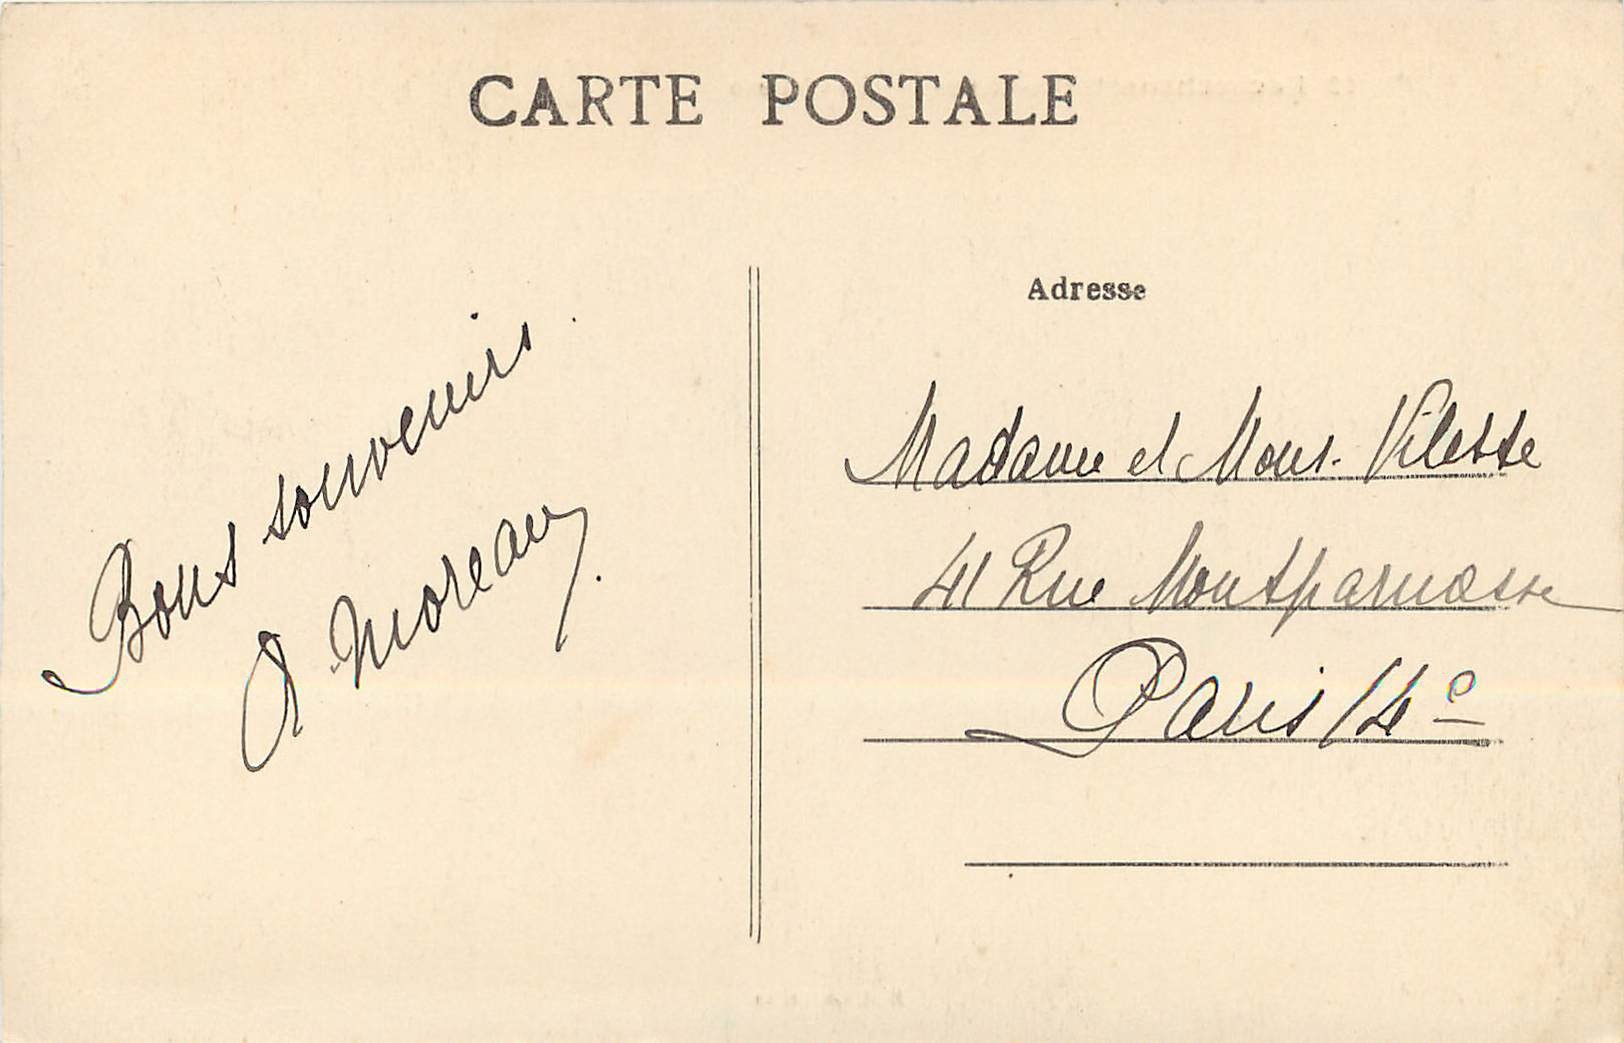 CARTE POSTALE
Bons souvenirs
A Moreau
Adresse
Madame et Mons. Vilesse
41 Rue Montparnasse
Paris 14e